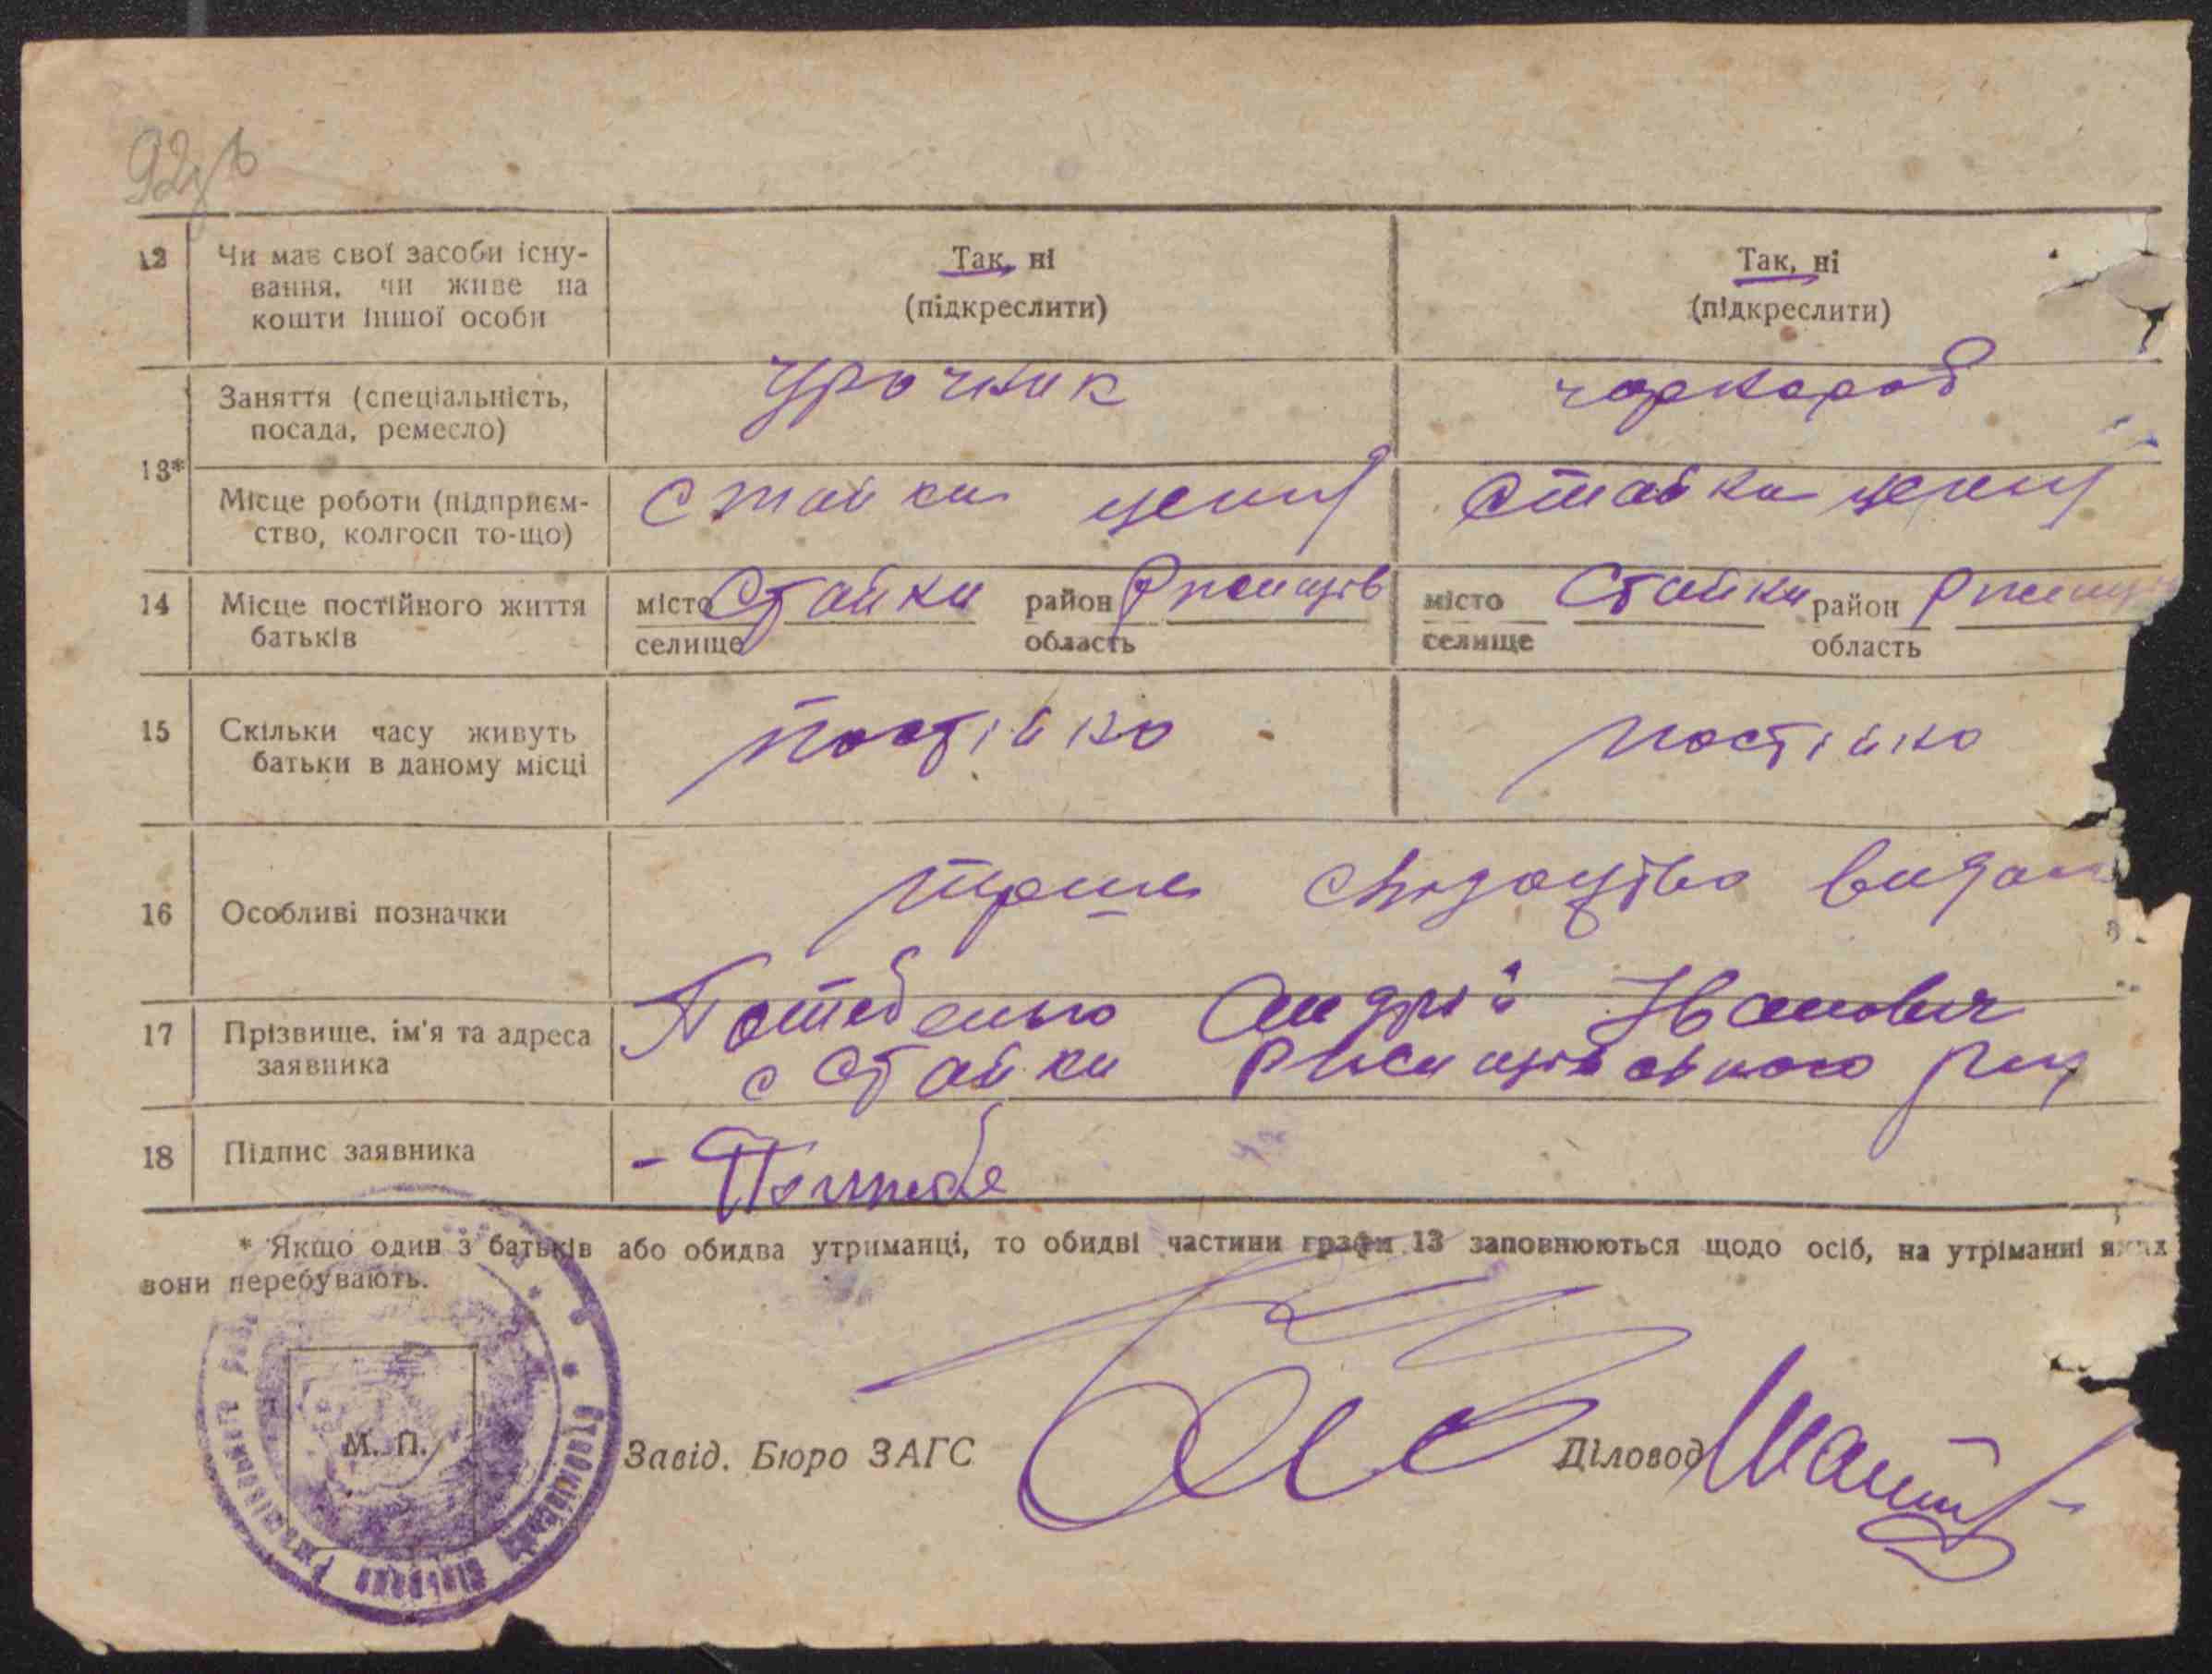 92зв
12 Чи має свої засоби існу-
вання, чи живе на
кошти іншої особи
Так, ні
(підкреслити)
Так, ні
(підкреслити)
13* Заняття (спеціальність,
посада, ремесло)
чорнороб
Місце роботи (підприєм-
ство, колгосп то-що)
Стайки
Стайки
14 Місце постійного життя
батьків
місто Стайки район Ржищів
селище область
місто Стайки район
селище область
15 Скільки часу живуть
батьки в даному місці
постійно
постійно
16 Особливі позначки
свідоцтво видан
17 Прізвище, ім'я та адреса
заявника
Потебенько Андрій Іванович
с Стайки Ржищівського
18 Підпис заявника
- Потебе
* Якщо один з батьків або обидва утриманці, то обидві частини графи 13 заповнюються щодо осіб, на утріманні яких
вони перебувають.
М. П.
Завід. Бюро ЗАГС
Діловод